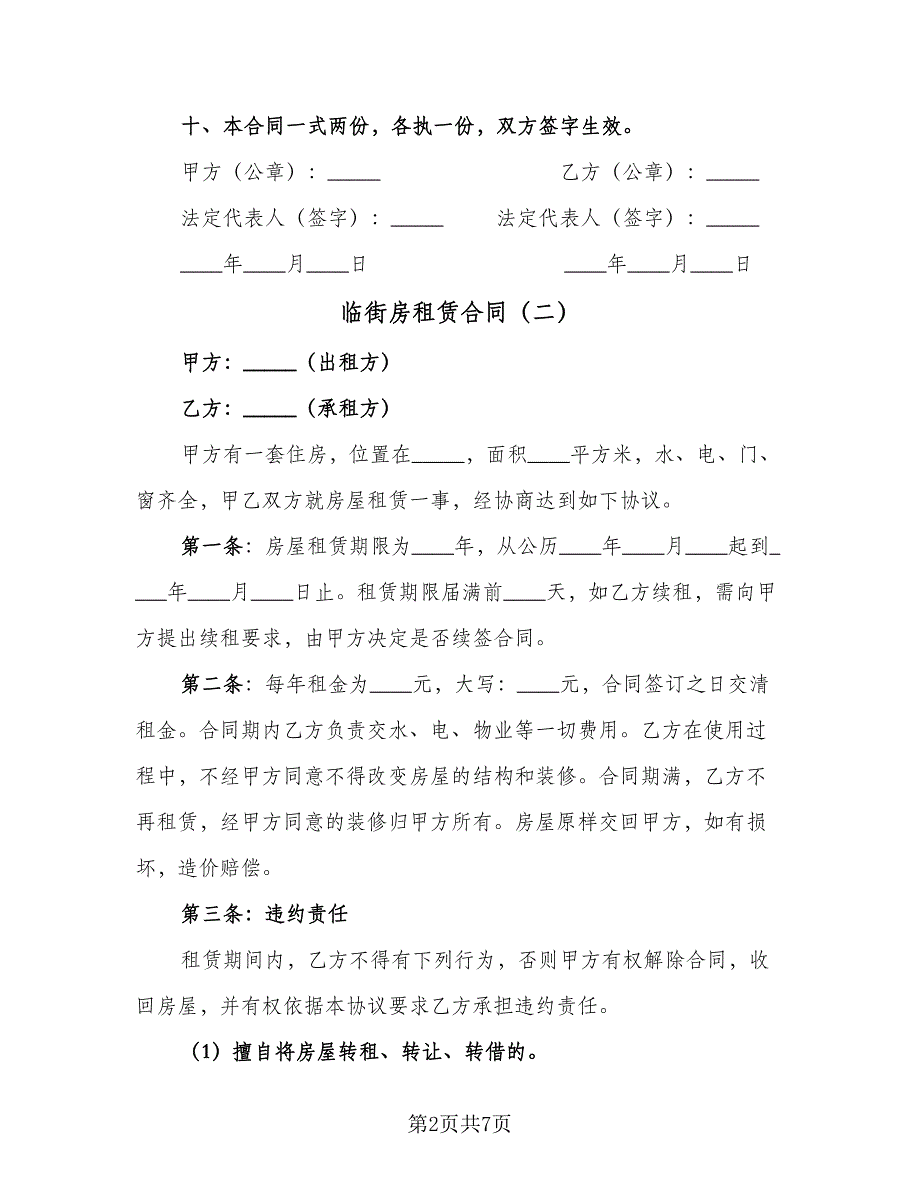 十、本合同一式两份，各执一份，双方签字生效。
甲方（公章）：_____ 乙方（公章）：_____
法定代表人（签字）：_____ 法定代表人（签字）：_____
____年____月____日 ____年____月____日
临街房租赁合同（二）
甲方：_____（出租方）
乙方：_____（承租方）
甲方有一套住房，位置在_____，面积____平方米，水、电、门、
窗齐全，甲乙双方就房屋租赁一事，经协商达到如下协议。
第一条：房屋租赁期限为____年，从公历____年____月____起到_
___年____月____日止。租赁期限届满前____天，如乙方续租，需向甲
方提出续租要求，由甲方决定是否续签合同。
第二条：每年租金为____元，大写：____元，合同签订之日交清
租金。合同期内乙方负责交水、电、物业等一切费用。乙方在使用过
程中，不经甲方同意不得改变房屋的结构和装修。合同期满，乙方不
再租赁，经甲方同意的装修归甲方所有。房屋原样交回甲方，如有损
坏，造价赔偿。
第三条：违约责任
租赁期间内，乙方不得有下列行为，否则甲方有权解除合同，收
回房屋，并有权依据本协议要求乙方承担违约责任。
（1）擅自将房屋转租、转让、转借的。
第2页共7页